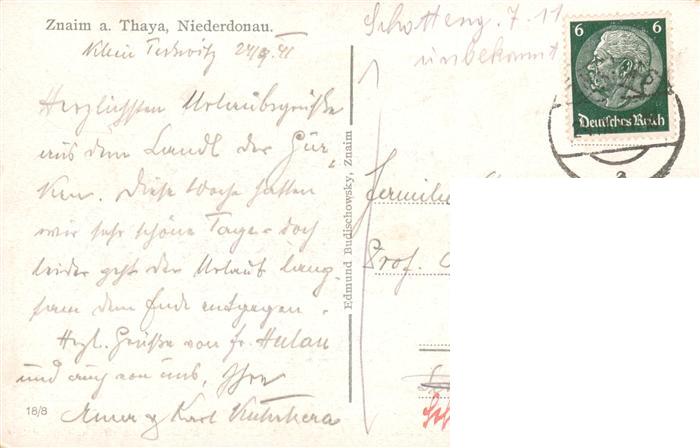 Znaim a. Thaya, Niederdonau.
Klein Teskwitz 24/8 41
Herzlichsten Urlaubsgrüße
aus dem Landl der Gur-
ken. Diese Woche hatten
wir sehr schöne Tage - doch
leider geht der Urlaub lang-
sam dem Ende entgegen.
Hzgl. Grüße von Fr.
und auch von uns, Ihre
Karl
18/8
Edmund Budischowsky, Znaim
Schotteng. 7. 11
unbekannt
6 6
Deutsches Reich
a
Familie
Prof.